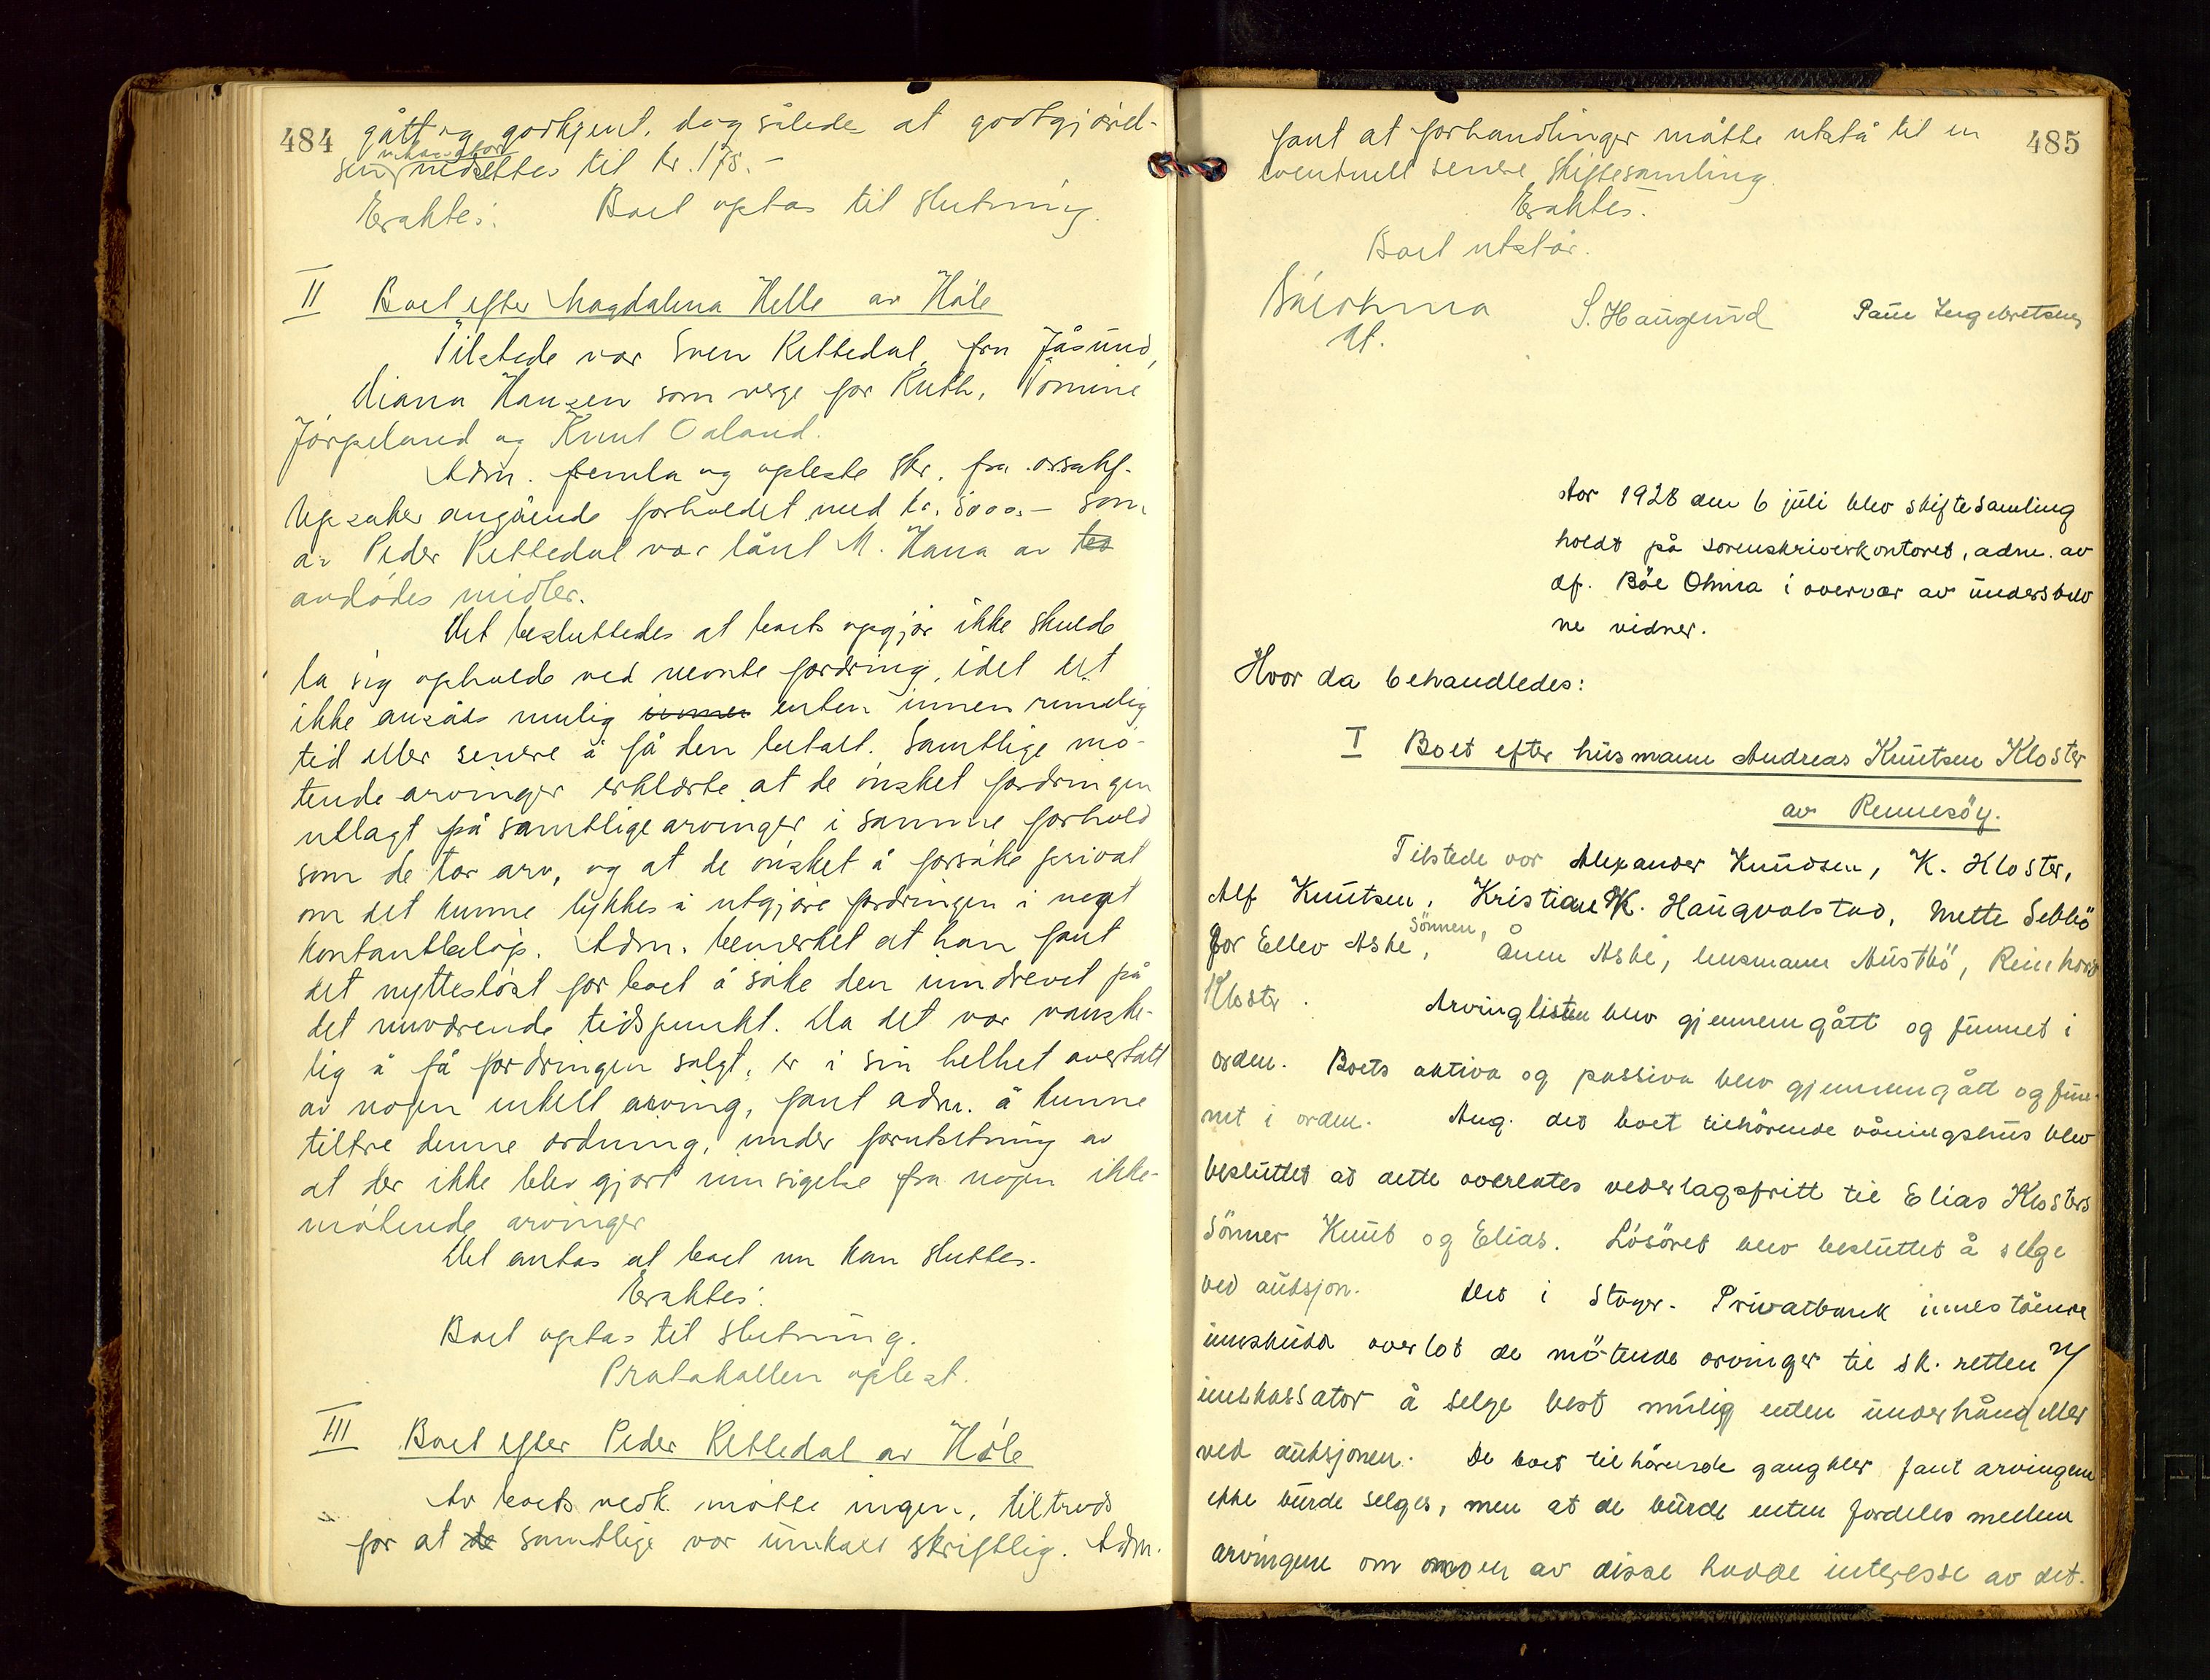 484
gått og godkjent, dog således at godtgjørel-
sen nedsettes til kr. 175.-
Eraktes: Boet optas til slutning.
II Boet efter Magdalena Helle av Høle
Tilstede var Sven Rettedal, fru Jåsund,
Diana Hansen som verge for Ruth, Tomine
Jørpeland og Knut Oaland.
Adm. fremla og opleste skr. fra o.r.sakf.
angående forholdet med kr. 5000.- som
av Peder Rettedal var lånt M. Hana av
avdødes midler.
Det besluttedes at boets opgjør ikke skulde
la sig opholde ved nevnte fordring, idet det
ikke ansåes mulig innen enten innen rimelig
tid eller senere å få den betalt. Samtlige mø-
tende arvinger erklærte at de ønsket fordringen
utlagt på samtlige arvinger i samme forhold
som de tar arv, og at de ønsket å forsøke privat
om det kunne lykkes å utgjøre fordringen i noget
kontantbeløp. Adm. bemerket at han fant
det nytteløst for boet å søke den inndrevet på
det nuværende tidspunkt. Da det var vanske-
lig å få fordringen solgt, er i sin helhet overtatt
av nogen enkelt arving, fant adm. å kunne
tiltre denne ordning, under forutsetning av
at der ikke blev gjort innsigelse fra nogen ikke-
møtende arvinger
Det antas at boet nu kan sluttes.
Eraktes:
Boet optas til slutning.
Protokollen oplest.
III Boet efter Peder Rettedal av Høle
Av boets vedk. møtte ingen, tiltrods
for at de samtlige var innkalt skriftlig. Adm.
485
fant at forhandlinger måtte utstå til en
eventuell senere skiftesamling.
Eraktes:
Boet utstår.
Bøe Ohma S. Haugund Paul Ingebretsen
df.
Aar 1928 den 6 juli blev skiftesamling
holdt på sorenskriverkontoret, adm. av
df. Böe Ohma i overvær av underskrev
ne vidner.
Hvor da behandledes:
I Boet efter husmann Andreas Knutsen Kloster
av Rennesöy.
Tilstede var Alexander Knudsen, K. Kloster,
Alf Knutsen, Kristian K. Haugvalstad, Mette Sebbö
for Ellev Aske, Sönnen, Ånen Aske, lensmann Austbö, Reinhard
Kloster. Arvinglisten blev gjennemgått og funnet i
orden. Boets aktiva og passiva blev gjennemgått og fun-
net i orden. Ang. det boet tilhörende våningshus blev
besluttet at dette overlates vederlagsfritt til Elias Klosters
Sönner Knut og Elias. Lösöret blev besluttet å selge
ved auksjon. Det i Stavgr. Privatbank innestående
innskudd overlot de mötende arvinger til sk. retten v/
innkassator å selge best mulig enten underhånd eller
ved auksjonen. De boet tilhörende gangkler fant arvingene
ikke burde selges, men at de burde enten fordeles mellem
arvingene om nogen av disse hadde interesse av det.